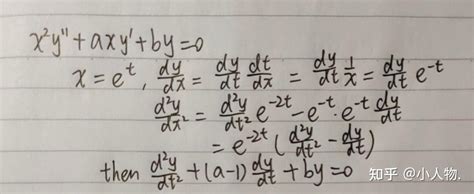 x²y″+axy′+by=0
x=eᵗ, dy/dx = dy/dt dt/dx = dy/dt 1/x = dy/dt e⁻ᵗ
d²y/dx² = d²y/dt² e⁻²ᵗ - e⁻ᵗ·e⁻ᵗ dy/dt
= e⁻²ᵗ (d²y/dt² - dy/dt)
then d²y/dt² + (a-1) dy/dt + by=0
知乎 @小人物.